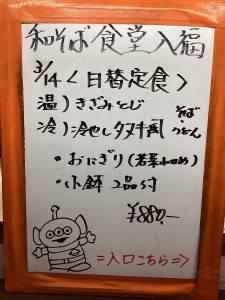 和そば食堂入福
3/14<日替定食>
温)きざみとじ
冷)冷やしタヌキ風
そば
うどん
・おにぎり(若菜わかめ)
・小鉢2品付
¥880.-
=入口こちら=>